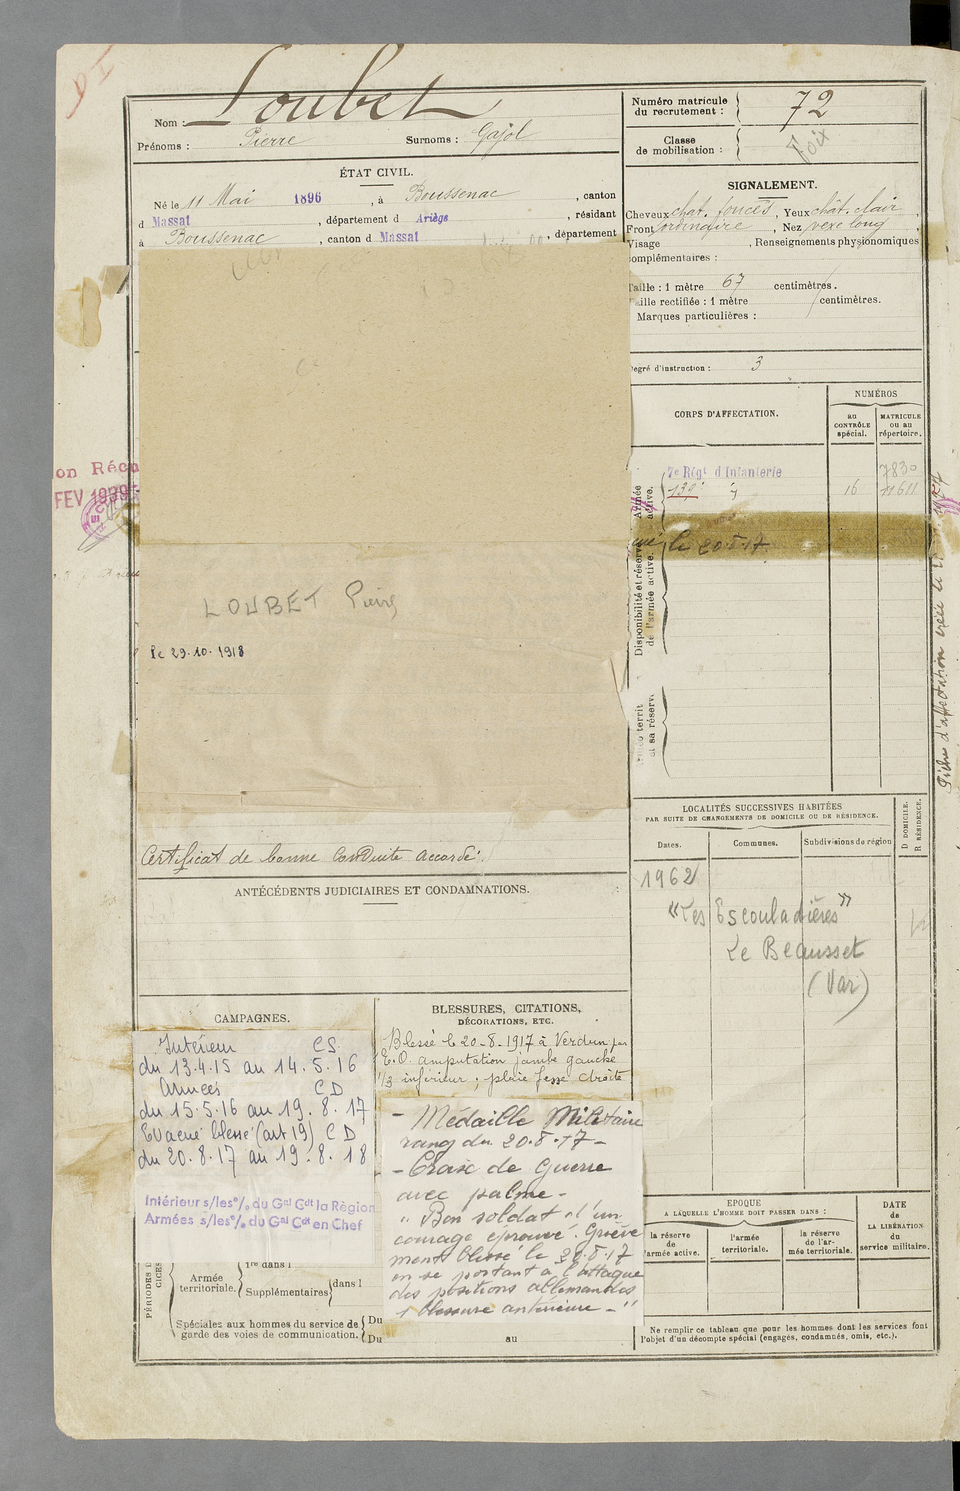 Nom : Loubet
Prénoms : Pierre Surnoms : Gajol
ÉTAT CIVIL.
Né le 11 Mai 1896, à Boussenac, canton
d Massat, département d Ariège, résidant
à Boussenac, canton d Massat, département
on Réc
FEV 1939
LOUBET Pierre
le 29.10.1918
Certificat de bonne conduite accordé.
ANTÉCÉDENTS JUDICIAIRES ET CONDAMNATIONS.
CAMPAGNES.
Intérieur CS.
du 13.4.15 au 14.5.16
Armées CD
du 15.5.16 au 19.8.17
Evacué blessé (art 19) CD
du 20.8.17 au 19.8.18
Intérieur s/les % du Gal Cdt la Région
Armées s/les % du Gal Cdt en Chef
PÉRIODES
Armée territoriale.
1re dans l
Supplémentaires dans l
Spéciales aux hommes du service de garde des voies de communication.
Du
Du au
BLESSURES, CITATIONS,
DÉCORATIONS, ETC.
Blessé le 20-8-1917 à Verdun par
E.O. amputation jambe gauche
1/3 inférieur ; plaie fesse droite
- Médaille Militaire
rang du 20.8.17 -
- Croix de Guerre
avec palme -
" Bon soldat d'un
courage éprouvé. Griève
ment blessé le 20.8.17
en se portant à l'attaque
des positions allemandes
1 blessure antérieure - "
Numéro matricule
du recrutement : 72
Classe
de mobilisation :
Foix
SIGNALEMENT.
Cheveux chat. foncés, Yeux chât. clair,
Front ordinaire, Nez vexe long,
Visage , Renseignements physionomiques
complémentaires :
Taille : 1 mètre 67 centimètres.
Taille rectifiée : 1 mètre centimètres.
Marques particulières :
Degré d'instruction : 3
CORPS D'AFFECTATION.
NUMÉROS
au
CONTRÔLE
spécial.
MATRICULE
ou au
répertoire.
Armée
active.
7e Régt d'Infanterie 7830
139e d° 16 11611
Disponibilité et réserve
de l'armée active.
le 20.8.17
territ
et sa réserve
Fiche d'affectation créée le
LOCALITÉS SUCCESSIVES HABITÉES
PAR SUITE DE CHANGEMENTS DE DOMICILE OU DE RÉSIDENCE.
Dates. Communes. Subdivisions de région
D DOMICILE.
R RÉSIDENCE.
1962
"Les Escouladières"
Le Beausset
(Var)
EPOQUE
A LAQUELLE L'HOMME DOIT PASSER DANS :
la réserve
de
l'armée active.
l'armée
territoriale.
la réserve
de l'ar-
mée territoriale.
DATE
de
LA LIBÉRATION
du
service militaire.
Ne remplir ce tableau que pour les hommes dont les services font
l'objet d'un décompte spécial (engagés, condamnés, omis, etc.).